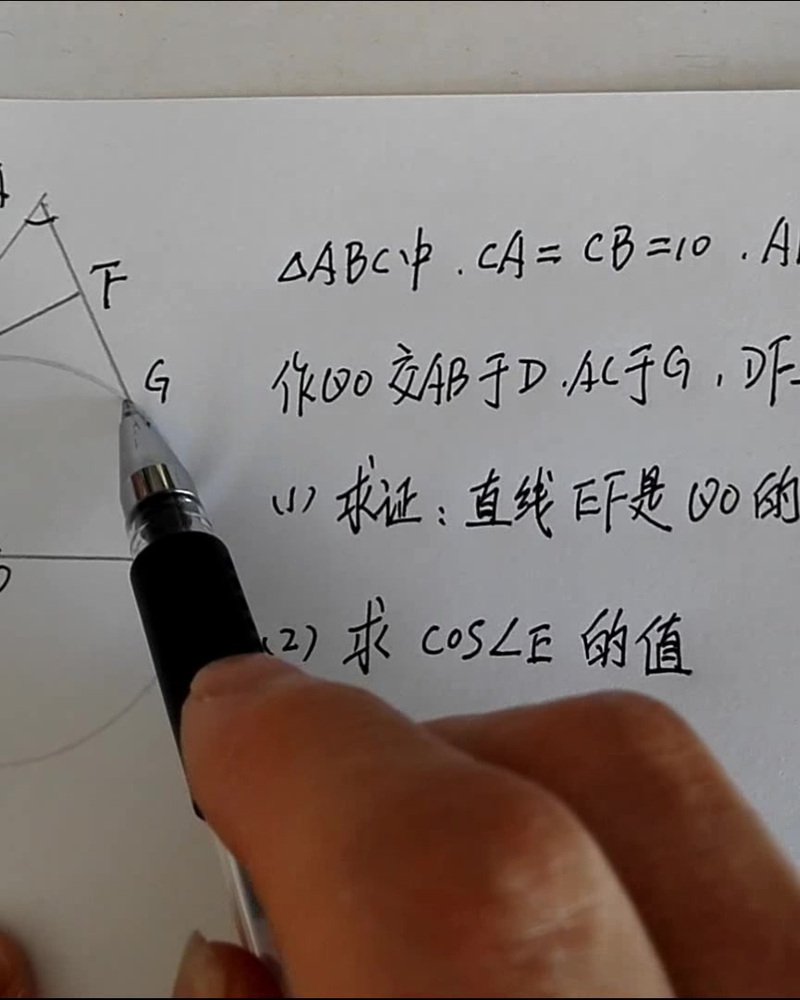 A
F
G
△ABC中.CA=CB=10.A
作⊙O交AB于D.AC于G,DF
(1)求证:直线EF是⊙O的
(2)求cos∠E的值